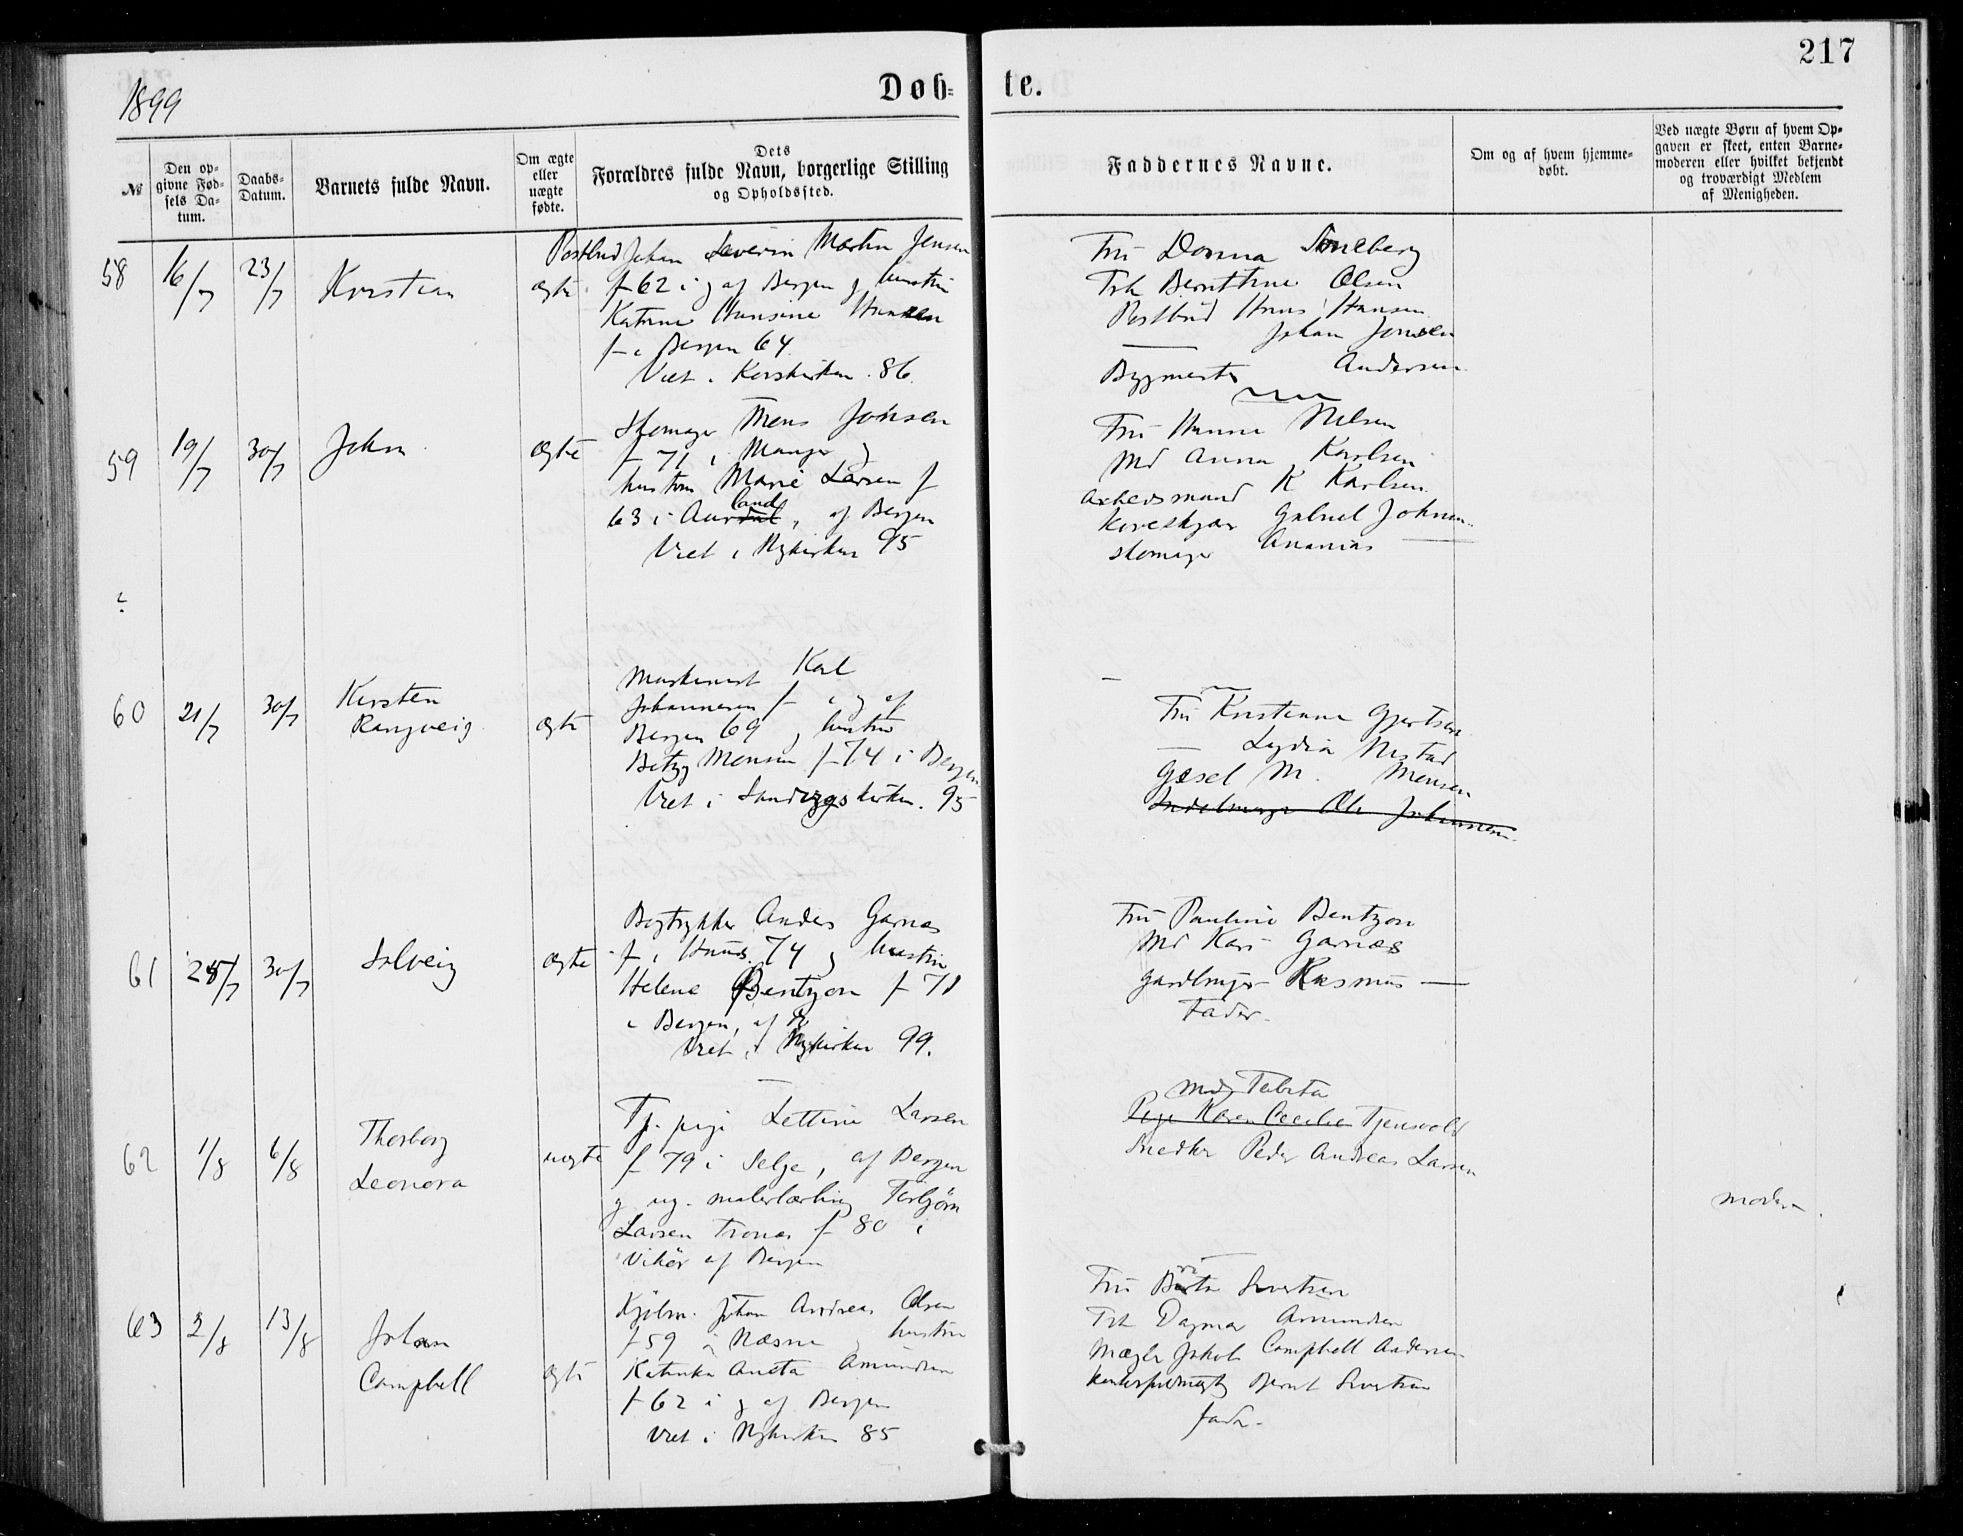 217
1899
Døbte.
№
Den opgivne Fødsels Datum.
Daabs-Datum.
Barnets fulde Navn.
Om ægte eller uægte fødte.
Dets Forældres fulde Navn, borgerlige Stilling og Opholdssted.
Faddernes Navne.
Om og af hvem hjemmedøbt.
Ved uægte Børn af hvem Opgaven er skeet, enten Barnemoderen eller hvilket bekjendt og troværdigt Medlem af Menigheden.
58 16/7 23/7 Kristian ægte
Postbud Johan Severin Martin Jensen
f 62 i g af Bergen g hustru
Katrine Hansine Hansen
f i Bergen 64
Viet i Korskirken 86.
Fru Donna
Frk Bernttine Olsen
Postbud Hans Hansen
— Johan Jensen
Bygmester Andersen
59 19/7 30/7 John ægte
Skomager Mons Johsen
f 71 i Manger g
hustru Marie Larsen f
63 i Aurland, af Bergen
Viet i Nykirken 95
Fru Hanna Nilsen
Md Anna Karlsen
Arbeidsmand K Karlsen
Gabriel Johnsen
skomager Ananias —
60 21/7 30/7 Kirsten
Rangveig ægte
Maskinist Karl
Johannesen f i g af
Bergen 69 g hustru
Betzy Monsen f 74 i Bergen
Viet i Sandvigskirken. 95
Fru Kristianna Gjertsen
— Lydia Mestad
Gæsel M. Monsen
Ole Johannesen
61 28/7 30/7 Solveig ægte
Bogtrykker Anders Garnæs
f i Haus 74 g hustru
Helene Bentzon f 71
i Bergen, af B
Viet i Nykirken 99.
Fru Pauline Bentzon
Md Kari Garnæs
gardbruger Rasmus —
Fader.
62 1/8 6/8 Thorborg
Leonora uægte
Tj. pige Lettine Larsen
f 79 i Selje, af Bergen
g ug. malerlærling Torbjörn
Larsen Tronæs f 80 i
Vikör af Bergen
Md Tabita
Pige Karen Cecilie Tjensvold
Snedker Peder Andreas Larsen
moder
63 2/8 13/8 Johan
Campbell ægte
Kjøbm. Johan Andreas Olsen
f 59 i Næsne g hustru
Katinka Aneta Amundsen
f 62 i g af Bergen
Viet i Nykirken 85
Fru Berta Sivertsen
Frk Dagmar Amundsen
Mægler Jakob Campbell Andersen
Bernt Sivertsen
fader